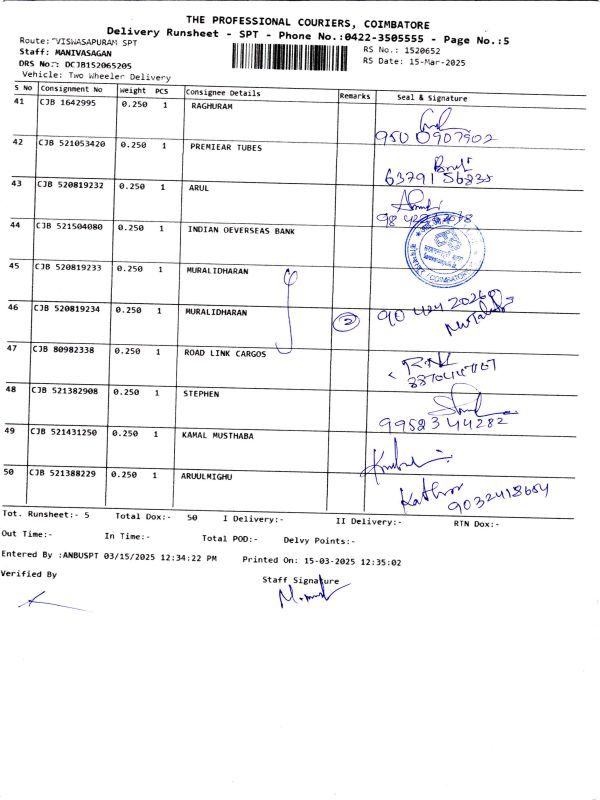 THE PROFESSIONAL COURIERS, COIMBATORE
Delivery Runsheet - SPT - Phone No.:0422-3505555 - Page No.:5
Route: VISWASAPURAM SPT
RS No.: 1520652
Staff: MANIVASAGAN
RS Date: 15-Mar-2025
DRS No.: DCJB152065205
Vehicle: Two Wheeler Delivery
S No Consignment No Weight PCS Consignee Details Remarks Seal & Signature
41 CJB 1642995 0.250 1 RAGHURAM 9500907902
42 CJB 521053420 0.250 1 PREMIEAR TUBES
43 CJB 520819232 0.250 1 ARUL
44 CJB 521504080 0.250 1 INDIAN OEVERSEAS BANK COIMBATORE
45 CJB 520819233 0.250 1 MURALIDHARAN
46 CJB 520819234 0.250 1 MURALIDHARAN 2
47 CJB 80982338 0.250 1 ROAD LINK CARGOS
48 CJB 521382908 0.250 1 STEPHEN 9952344282
49 CJB 521431250 0.250 1 KAMAL MUSTHABA
50 CJB 521388229 0.250 1 ARUULMIGHU 9032418654
Tot. Runsheet:- 5 Total Dox:- 50 I Delivery:- II Delivery:- RTN Dox:-
Out Time:- In Time:- Total POD:- Delvy Points:-
Entered By :ANBUSPT 03/15/2025 12:34:22 PM Printed On: 15-03-2025 12:35:02
Verified By Staff Signature